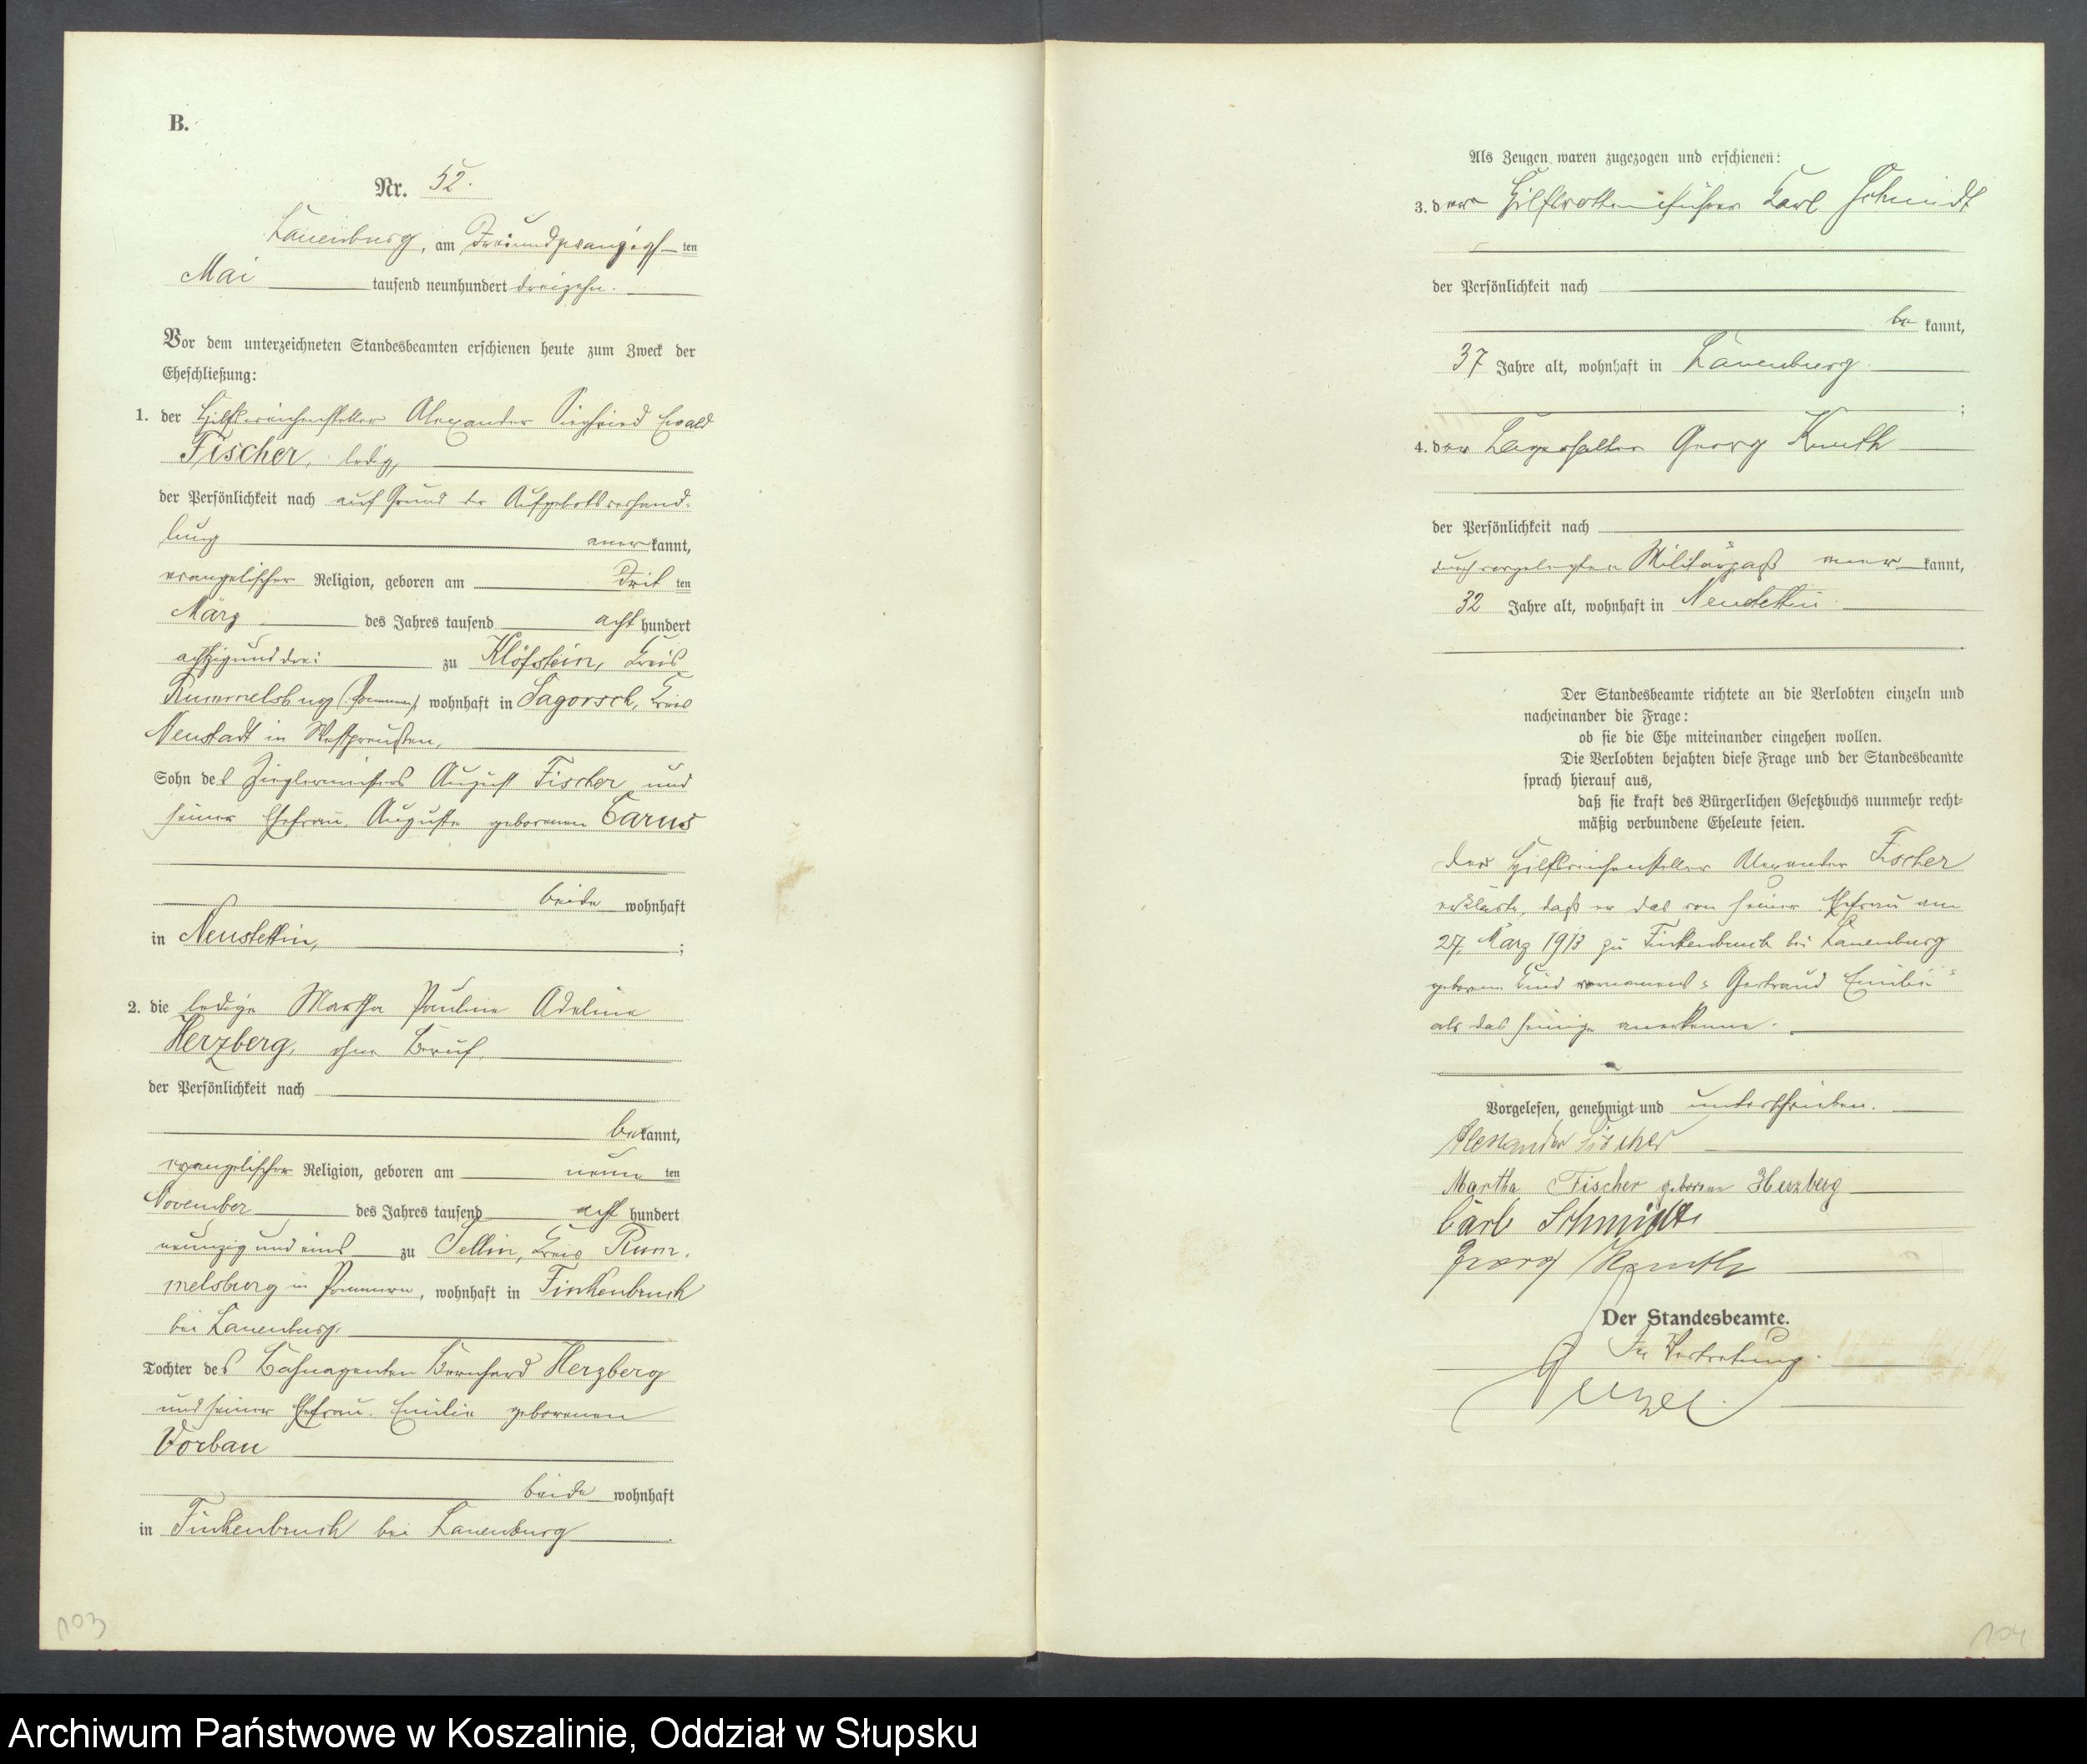 B.
Nr. 52.
Lauenburg, am dreiundzwanzigsten
Mai tausend neunhundert dreizehn.
Vor dem unterzeichneten Standesbeamten erschienen heute zum Zweck der
Eheschließung:
1. der Hilfsweichensteller Alexander Siegfried Ewald
Fischer, ledig,
der Persönlichkeit nach auf Grund der Aufgebotsverhand-
lung anerkannt,
evangelischer Religion, geboren am dritten
März des Jahres tausend acht hundert
achtzig und drei zu Klöfstein, Kreis
Rummelsburg (Pommern), wohnhaft in Sagorsch, Kreis
Neustadt in Westpreußen,
Sohn des Zieglermeisters August Fischer und
seiner Ehefrau, Auguste geborenen Carus
beide wohnhaft
in Neustettin, ;
2. die ledige Martha Pauline Adeline
Herzberg, ohne Beruf,
der Persönlichkeit nach
bekannt,
evangelischer Religion, geboren am neunten
November des Jahres tausend acht hundert
neunzig und eins zu Sellin, Kreis Rum-
melsburg in Pommern, wohnhaft in Finkenbruch
bei Lauenburg.
Tochter des Bahnagenten Bernhard Herzberg
und seiner Ehefrau, Emilie geborenen
Vorbau
beide wohnhaft
in Finkenbruch bei Lauenburg.
103
Als Zeugen waren zugezogen und erschienen:
3. der Hilfsrottenführer Karl Schmidt
der Persönlichkeit nach
bekannt,
37 Jahre alt, wohnhaft in Lauenburg
;
4. der Lagerhalter Georg Knuth
der Persönlichkeit nach
durch vorgelegten Militärpaß anerkannt,
32 Jahre alt, wohnhaft in Neustettin.
Der Standesbeamte richtete an die Verlobten einzeln und
nacheinander die Frage:
ob sie die Ehe miteinander eingehen wollen.
Die Verlobten bejahten diese Frage und der Standesbeamte
sprach hierauf aus,
daß sie kraft des Bürgerlichen Gesetzbuchs nunmehr recht-
mäßig verbundene Eheleute seien.
Der Hilfsweichensteller Alexander Fischer
erklärte, daß er das von seiner Ehefrau am
27. März 1913 zu Finkenbruch bei Lauenburg
geborene Kind vornamens "Gertraud Emilie"
als das seinige anerkenne.
Vorgelesen, genehmigt und unterschrieben.
Alexander Fischer
Martha Fischer geborene Herzberg
Carl Schmidt
Georg Knuth
Der Standesbeamte.
In Vertretung.
104
Archiwum Państwowe w Koszalinie, Oddział w Słupsku